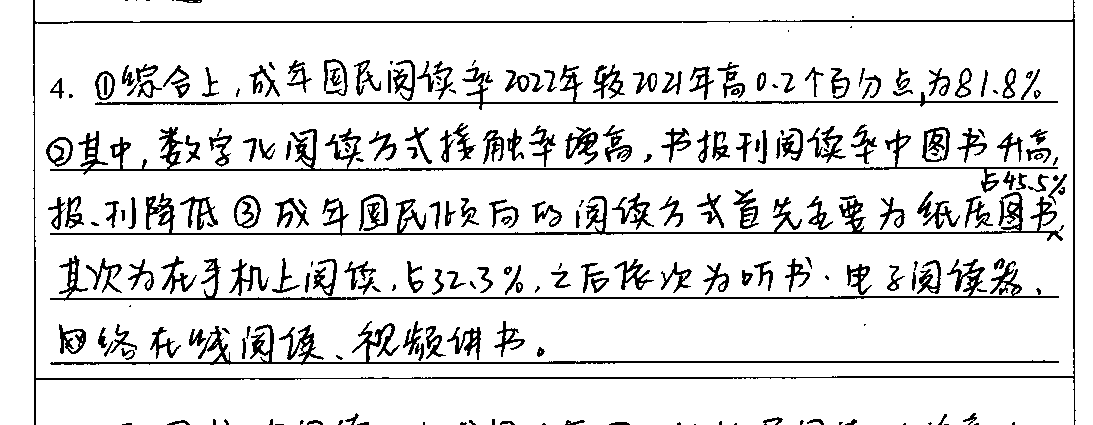 4. ①综合上,成年国民阅读率2022年较2021年高0.2个百分点,为81.8%
②其中,数字化阅读方式接触率增高,书报刊阅读率中图书升高,
报、刊降低③成年国民倾向的阅读方式首先主要为纸质图书,占45.5%
其次为在手机上阅读,占32.3%,之后依次为听书、电子阅读器、
网络在线阅读、视频讲书。